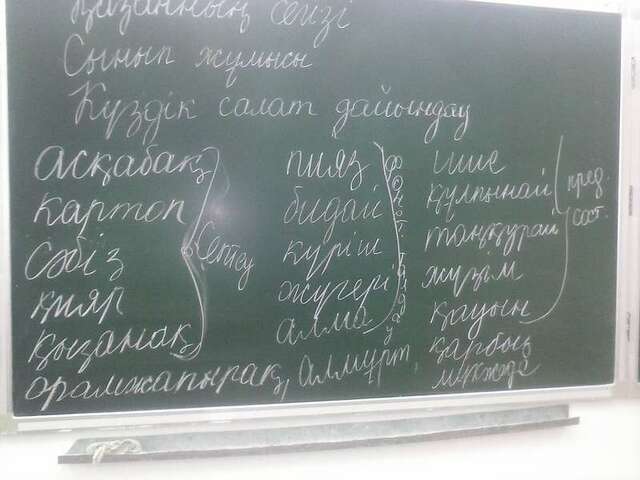 Қазанның сегізі
Сынып жұмысы
Күздік салат дайындау
асқабақ
картоп
сәбіз
қияр
қызанақ
орамжапырақ, алмұрт,
Септеу
пияз
бидай
күріш
жүгері
алма
шие
құлпынай
таңқурай
жүзім
қауын
қарбыз
мүкжидек
пред.
сост.